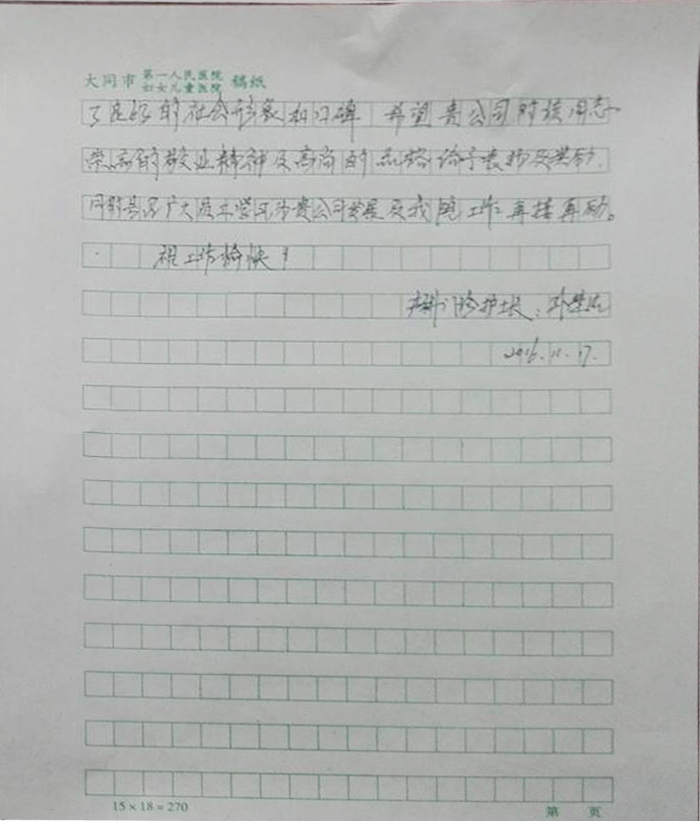 大同市 第一人民医院 妇女儿童医院 稿纸
了良好的社会形象和口碑 希望贵公司对该同志
崇高的敬业精神及高尚的品格给予表扬及奖励,
同时号召广大员工学习为贵公司发展及我院工作再接再励。
祝工作愉快!
门诊护士长:
2016.11.17.
15×18=270
第 页